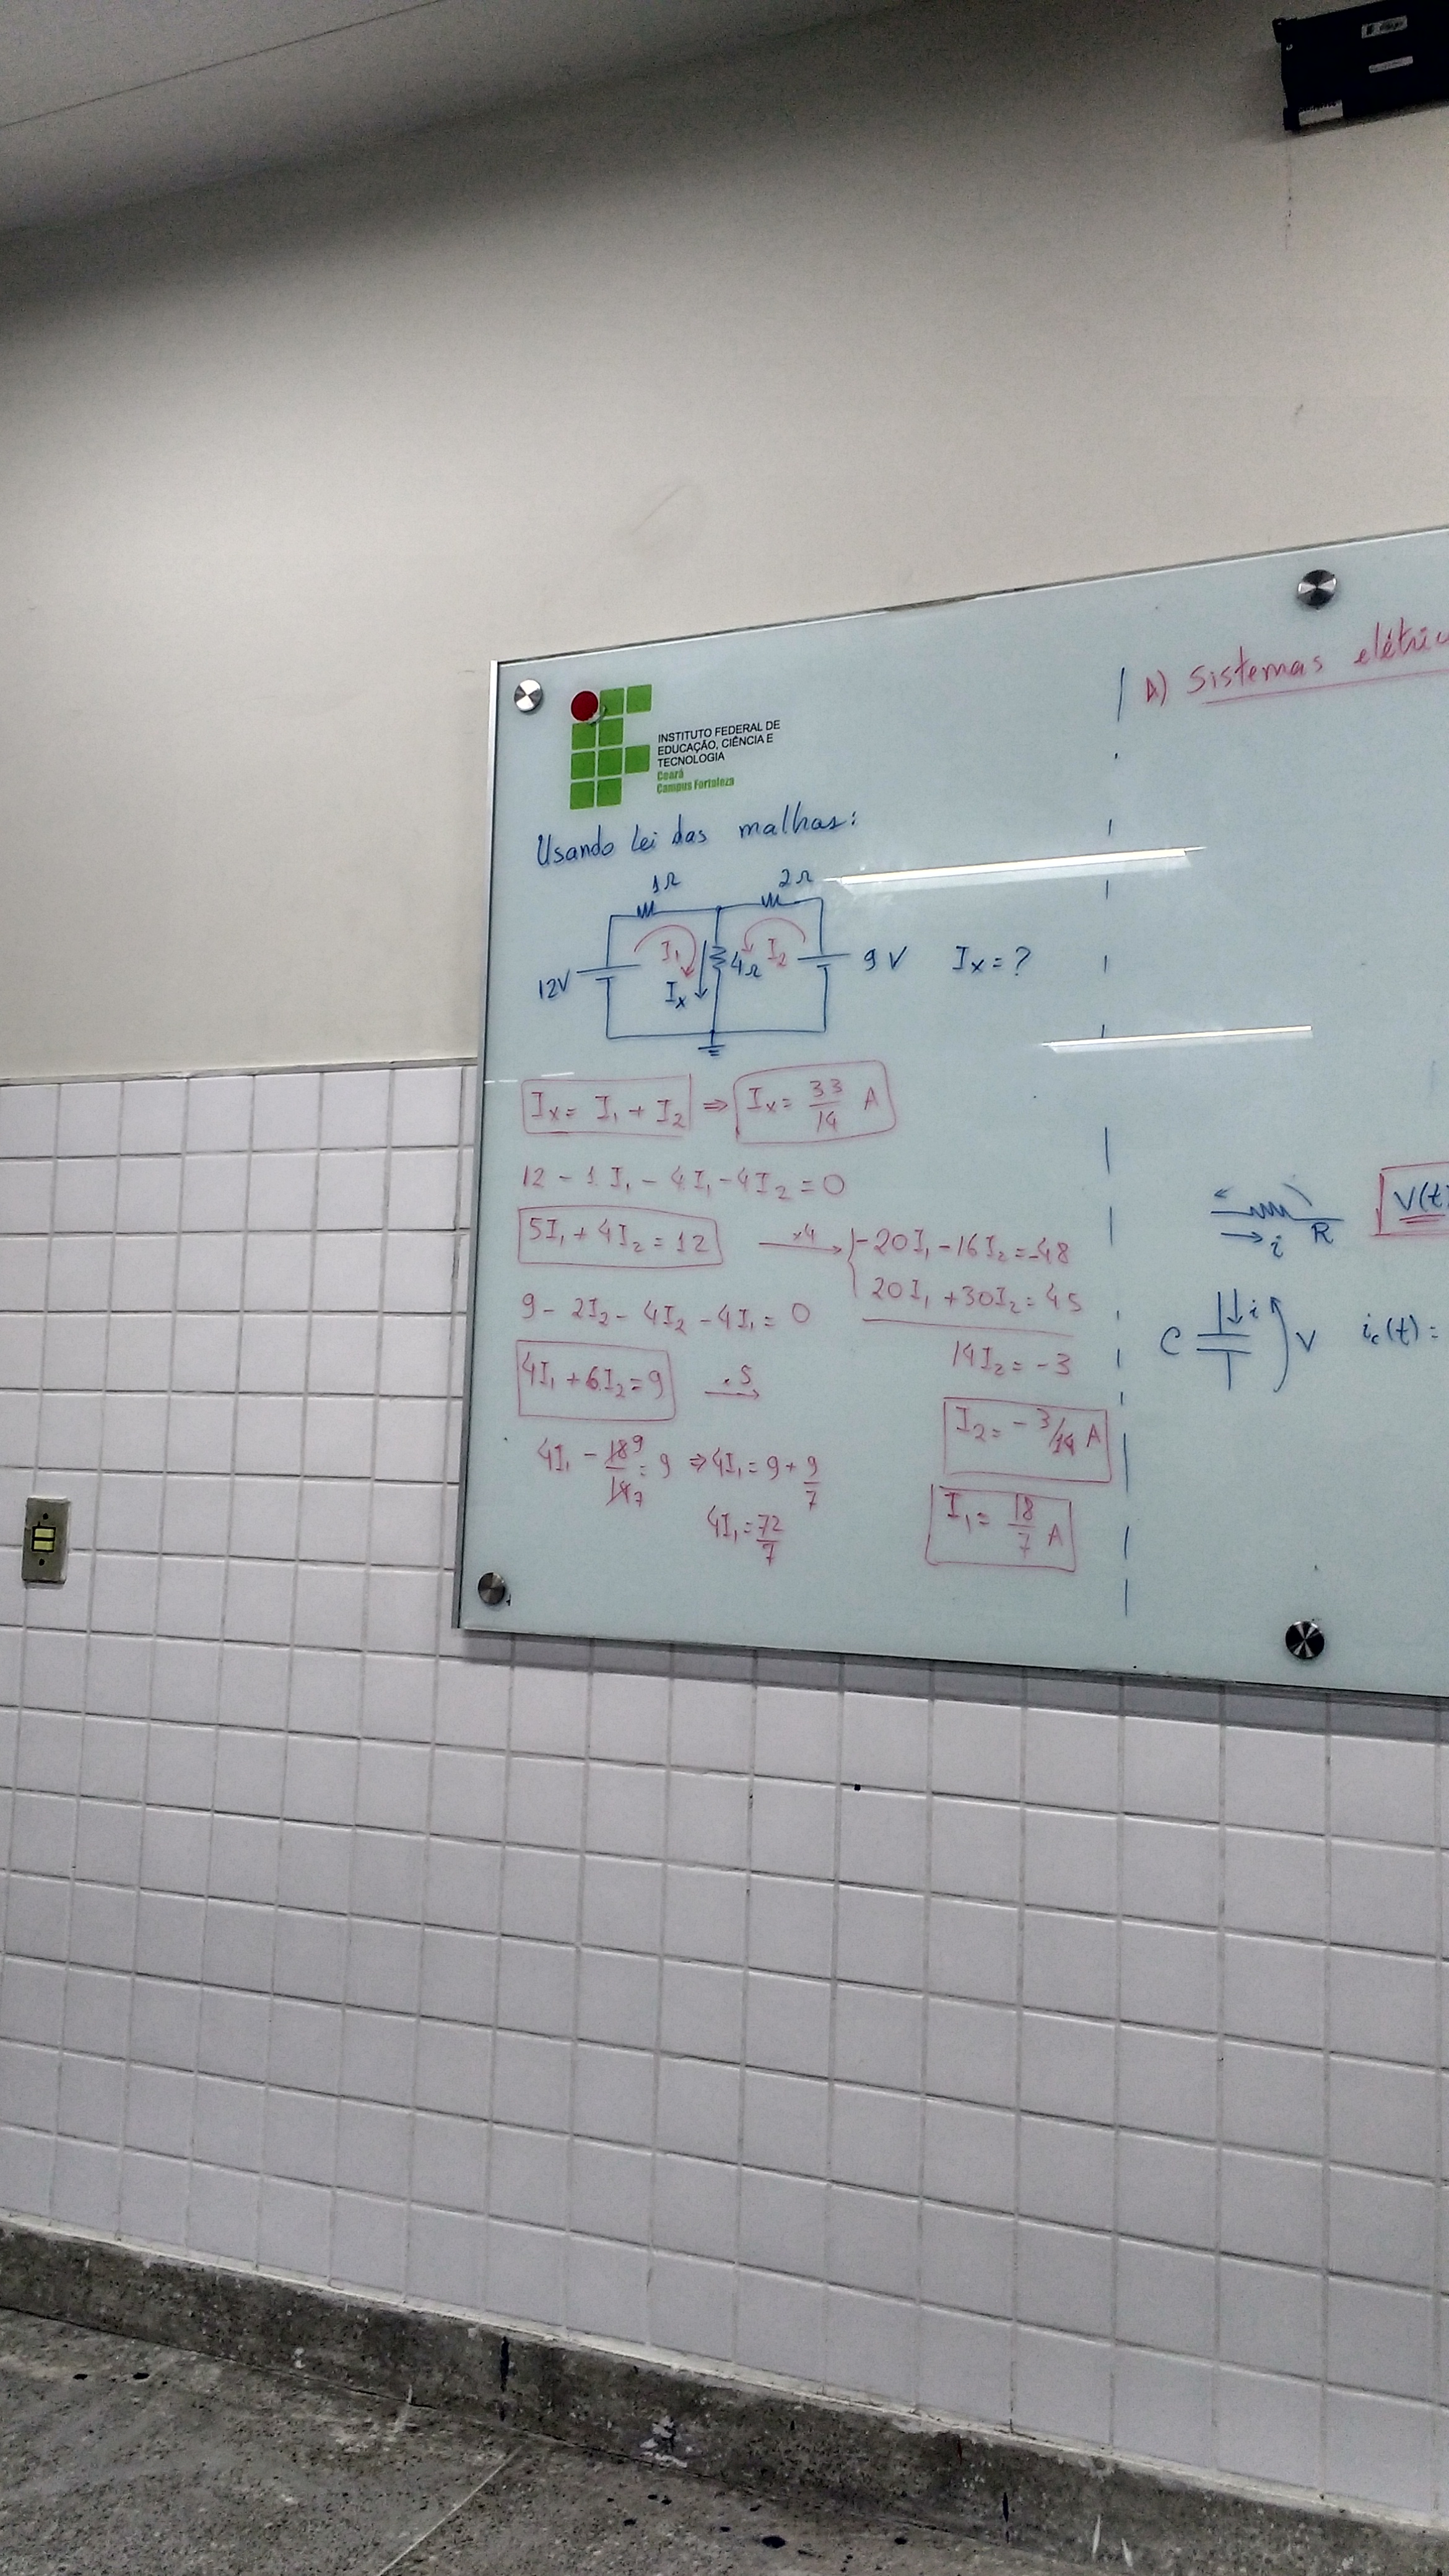 INSTITUTO FEDERAL DE
EDUCAÇÃO, CIÊNCIA E
TECNOLOGIA
Ceará
Campus Fortaleza
Usando Lei das malhas:
1Ω 2Ω
12V I₁ Iₓ 4Ω I₂ 9V Iₓ = ?
Iₓ = I₁ + I₂ ⇒ Iₓ = 33/14 A
12 - 1I₁ - 4I₁ - 4I₂ = 0
5I₁ + 4I₂ = 12 ×4 → { -20I₁ - 16I₂ = -48
9 - 2I₂ - 4I₂ - 4I₁ = 0 20I₁ + 30I₂ = 45
14I₂ = -3
4I₁ + 6I₂ = 9 ·5 →
I₂ = -3/14 A
4I₁ - 18/14 9/7 = 9 ⇒ 4I₁ = 9 + 9/7
4I₁ = 72/7
I₁ = 18/7 A
A) Sistemas elétric
i R V(t)
C i V i꜀(t) =